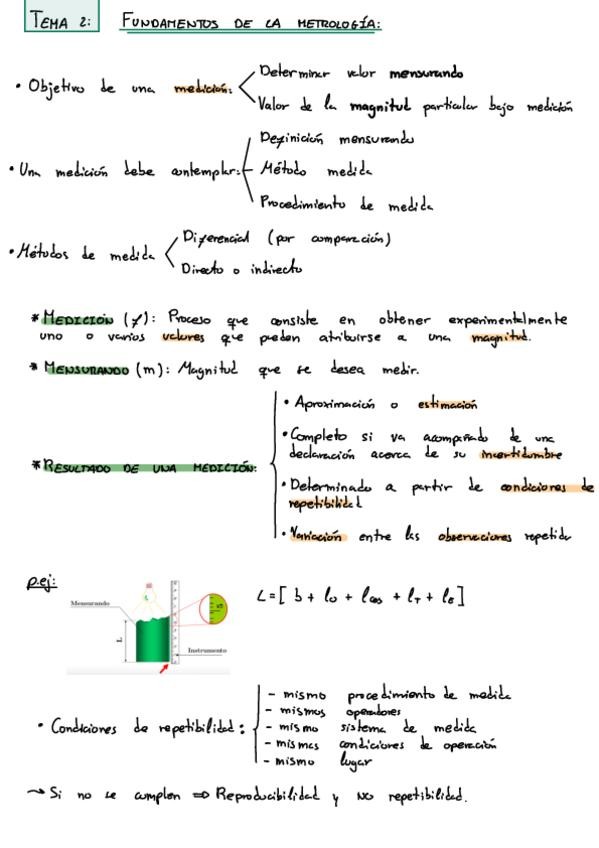 TEMA 2: FUNDAMENTOS DE LA METROLOGÍA:
• Objetivo de una medición:
Determinar valor mensurando
Valor de la magnitud particular bajo medición
• Una medición debe contemplar:
Definición mensurando
Método medida
Procedimiento de medida
• Métodos de medida
Diferencial (por comparación)
Directo o indirecto
* MEDICIÓN (y): Proceso que consiste en obtener experimentalmente
uno o varios valores que pueden atribuirse a una magnitud.
* MENSURANDO (m): Magnitud que se desea medir.
* RESULTADO DE UNA MEDICIÓN:
• Aproximación o estimación
• Completo si va acompañado de una
declaración acerca de su incertidumbre
• Determinado a partir de condiciones de
repetibilidad
• Variación entre las observaciones repetida
p.ej:
Mensurando
L
Instrumento
L=[ b + l₀ + lcos + lT + lE ]
• Condiciones de repetibilidad:
- mismo procedimiento de medida
- mismos operadores
- mismo sistema de medida
- mismas condiciones de operación
- mismo lugar
→ Si no se cumplen ⇒ Reproducibilidad y NO repetibilidad.